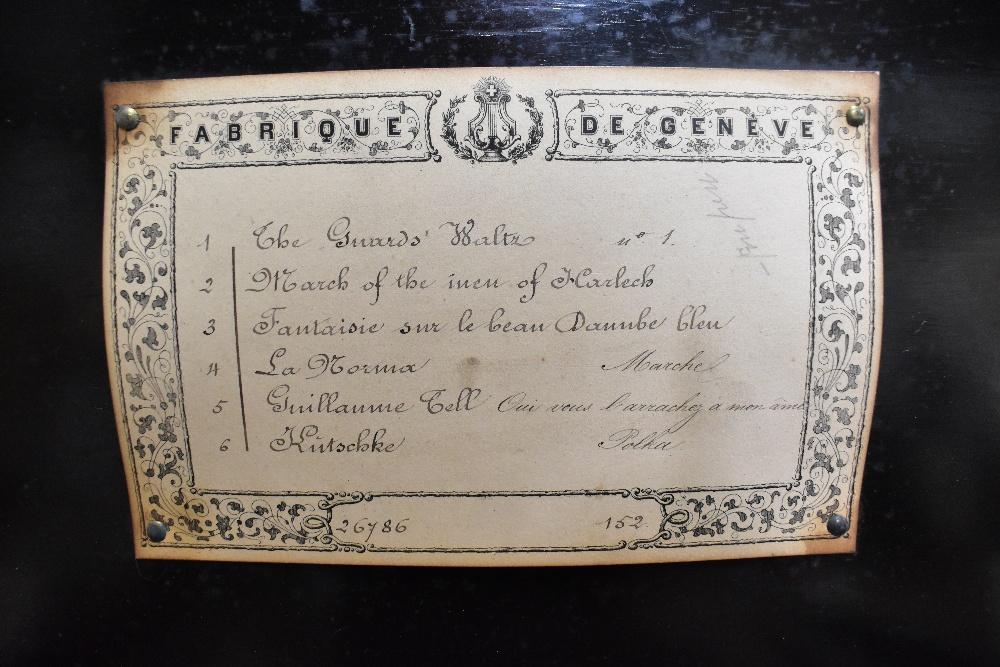 FABRIQUE DE GENÈVE
1 The Guards' Waltz nº 1.
2 March of the men of Harlech
3 Fantaisie sur le beau Danube bleu
4 La Norma Marche
5 Guillaume Tell Oui vous l'arrachez à mon âme
6 Kutschke Polka
26786 152